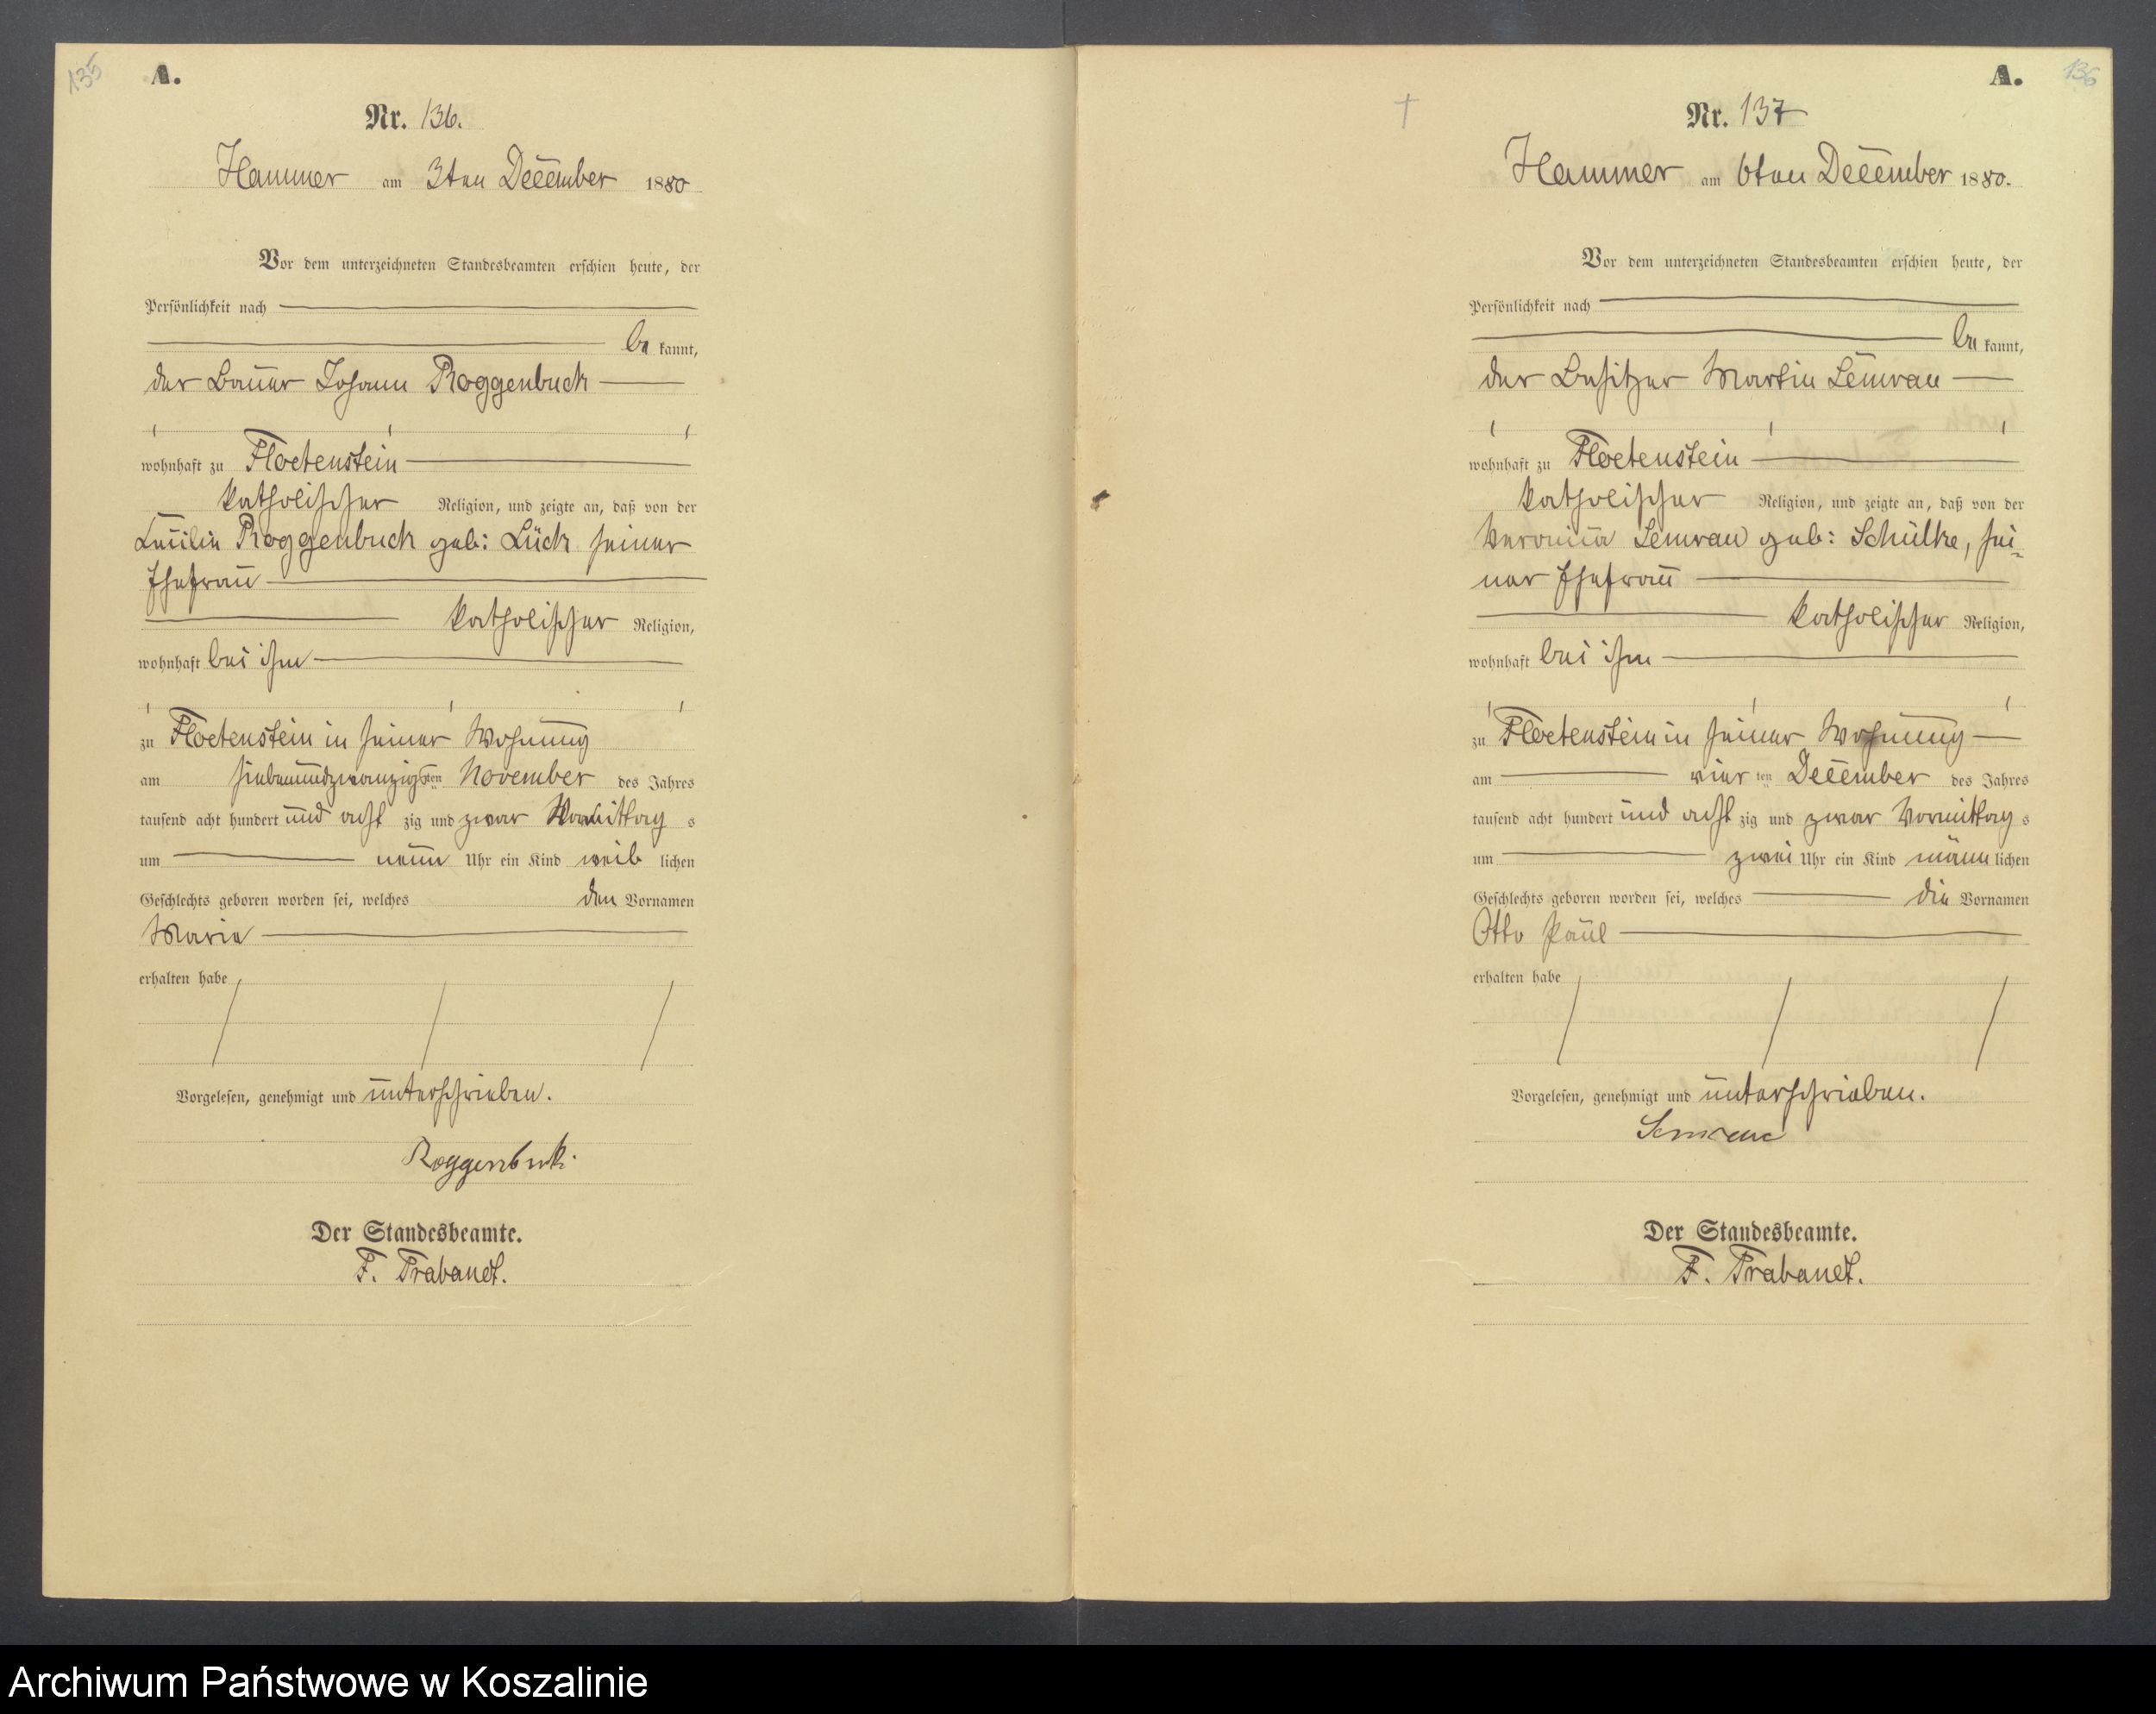 135
A.
Nr. 136.
Hammer am 3ten December 1880
Vor dem unterzeichneten Standesbeamten erschien heute, der
Persönlichkeit nach
be kannt,
der Bauer Johann Roggenbuck
wohnhaft zu Floetenstein
katholischer Religion, und zeigte an, daß von der
Roggenbuck geb: Lück seiner
Ehefrau
katholischer Religion,
wohnhaft bei ihm
zu Floetenstein in seiner Wohnung
am siebenundzwanzigsten November des Jahres
tausend acht hundert und acht zig und zwar Vormittag s
um neun Uhr ein Kind weib lichen
Geschlechts geboren worden sei, welches den Vornamen
Marie
erhalten habe
Vorgelesen, genehmigt und unterschrieben.
Roggenbuk.
Der Standesbeamte.
F. Trabandt.
136
A.
Nr. 137
Hammer am 6ten December 1880.
Vor dem unterzeichneten Standesbeamten erschien heute, der
Persönlichkeit nach
be kannt,
der Besitzer Martin Semrau
wohnhaft zu Floetenstein
katholischer Religion, und zeigte an, daß von der
Veronica Semrau geb: Schülke, sei-
ner Ehefrau
katholischer Religion,
wohnhaft bei ihm
zu Floetenstein in seiner Wohnung
am vier ten December des Jahres
tausend acht hundert und acht zig und zwar Vormittag s
um zwei Uhr ein Kind männ lichen
Geschlechts geboren worden sei, welches die Vornamen
Otto Paul
erhalten habe
Vorgelesen, genehmigt und unterschrieben.
Semrau
Der Standesbeamte.
F. Trabandt.
Archiwum Państwowe w Koszalinie